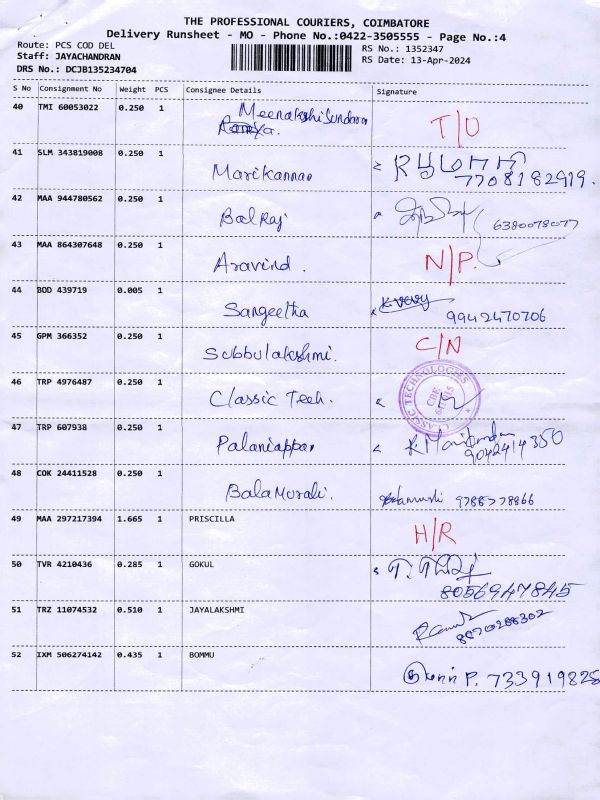 THE PROFESSIONAL COURIERS, COIMBATORE
Delivery Runsheet - MO - Phone No.:0422-3505555 - Page No.:4
Route: PCS COD DEL
RS No.: 1352347
Staff: JAYACHANDRAN
RS Date: 13-Apr-2024
DRS No.: DCJB135234704
S No Consignment No Weight PCS Consignee Details Signature
40 TMI 60053022 0.250 1 Meenakshi Sundaram T/U
41 SLM 343819008 0.250 1 Marikannan 7708182919.
42 MAA 944780562 0.250 1 Balraj 6380078077
43 MAA 864307648 0.250 1 Aravind. N/P.
44 BOD 439719 0.005 1 Sangeetha 9942470706
45 GPM 366352 0.250 1 Subbulakshmi. C/N
46 TRP 4976487 0.250 1 Classic Tech. CLASSIC TECHNOLOGIES
47 TRP 607938 0.250 1 Palaniappan 9042414350
48 COK 24411528 0.250 1 BalaMurali. 9788778866
49 MAA 297217394 1.665 1 PRISCILLA H/R
50 TVR 4210436 0.285 1 GOKUL 8056947845
51 TRZ 11074532 0.510 1 JAYALAKSHMI
52 IXM 506274142 0.435 1 BOMMU P. 733919828